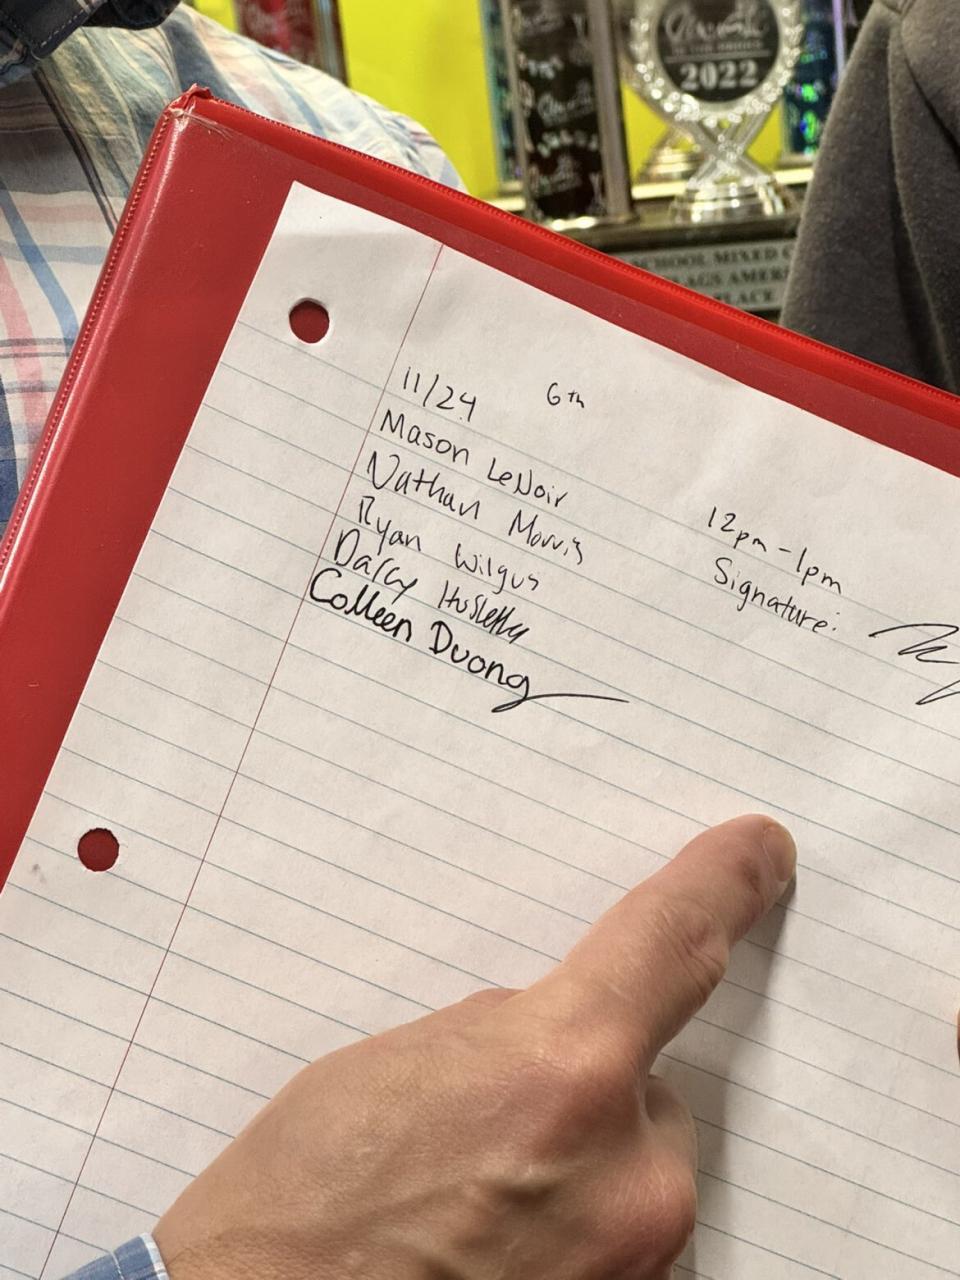 2022
SCHOOL MIXED
AGS AMER
PLACE
11/24 6th
Mason LeNoir
Nathan Morris
Ryan Wilgus
Darcy
Colleen Duong
12pm-1pm
Signature: